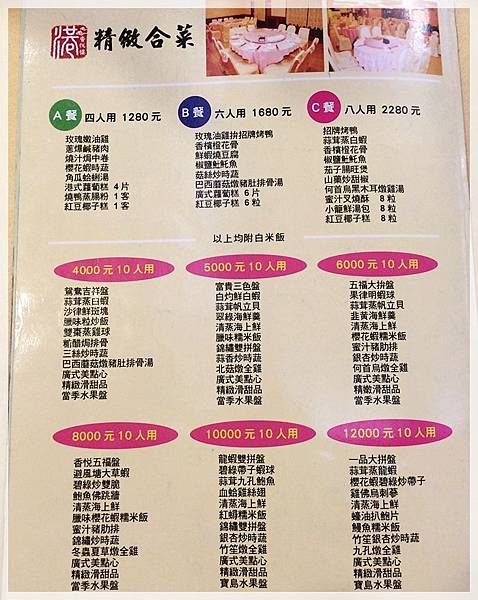 港
精緻合菜
A餐 四人用 1280元
玫瑰嫩油雞
蔥爆鹹豬肉
燒汁焗中卷
櫻花蝦時蔬
角瓜蛤蜊湯
港式蘿蔔糕 4片
燒鴨蒸腸粉 1客
紅豆椰子糕 1客
B餐 六人用 1680元
玫瑰油雞拚招牌烤鴨
香檳橙花骨
鮮蝦燒豆腐
椒鹽魟魠魚
菇絲炒時蔬
巴西蘑菇燉豬肚排骨湯
廣式蘿蔔糕 6片
紅豆椰子糕 6粒
C餐 八人用 2280元
招牌烤鴨
蒜茸蒸白蝦
香檳橙花骨
椒鹽魟魠魚
茄子腸旺煲
山藥炒甜椒
何首烏黑木耳燉雞湯
蜜汁叉燒酥 8粒
小龍鮮湯包 8粒
紅豆椰子糕 8粒
以上均附白米飯
4000元10人用
鴛鴦吉祥盤
蒜茸蒸白蝦
沙律鮮斑塊
臘味粒炒飯
雙棗蒸雞球
粭醋焗排骨
三絲炒時蔬
巴西蘑菇燉豬肚排骨湯
廣式美點心
精緻滑甜品
當季水果盤
5000元10人用
富貴三色盤
白灼鮮白蝦
蒜茸帆立貝
翠綠海鮮羹
清蒸海上鮮
臘味糯米飯
錦繡雙拼盤
蒜香炒時蔬
北菇燉全雞
廣式美點心
精緻滑甜品
當季水果盤
6000元10人用
五福大拚盤
果律明蝦球
蒜茸帆立貝
韭黃海鮮羹
清蒸海上鮮
櫻花蝦糯米飯
蜜汁豬肋排
銀杏炒時蔬
何首烏燉全雞
廣式美點心
精嫩滑甜品
當季水果盤
8000元10人用
香悅五福盤
避風塘大草蝦
碧綠炒雙脆
鮑魚佛跳牆
清蒸海上鮮
臘味櫻花蝦糯米飯
蜜汁豬肋排
錦繡炒時蔬
冬蟲夏草燉全雞
廣式美點心
精緻滑甜品
當季水果盤
10000元10人用
龍蝦雙拼盤
碧綠帶子蝦球
蒜茸九孔鮑魚
血蛤雞絲翅
清蒸海上鮮
紅蟳糯米飯
錦繡雙拼盤
銀杏炒時蔬
竹笙燉全雞
廣式美點心
精緻滑甜品
寶島水果盤
12000元10人用
一品大拼盤
蒜茸蒸龍蝦
櫻花蝦碧綠炒帶子
雞佛烏刺蔘
清蒸海上鮮
蠔油扒鮑片
鰻魚糯米飯
竹笙銀杏炒時蔬
九孔燉全雞
廣式美點心
精緻滑甜品
寶島水果盤